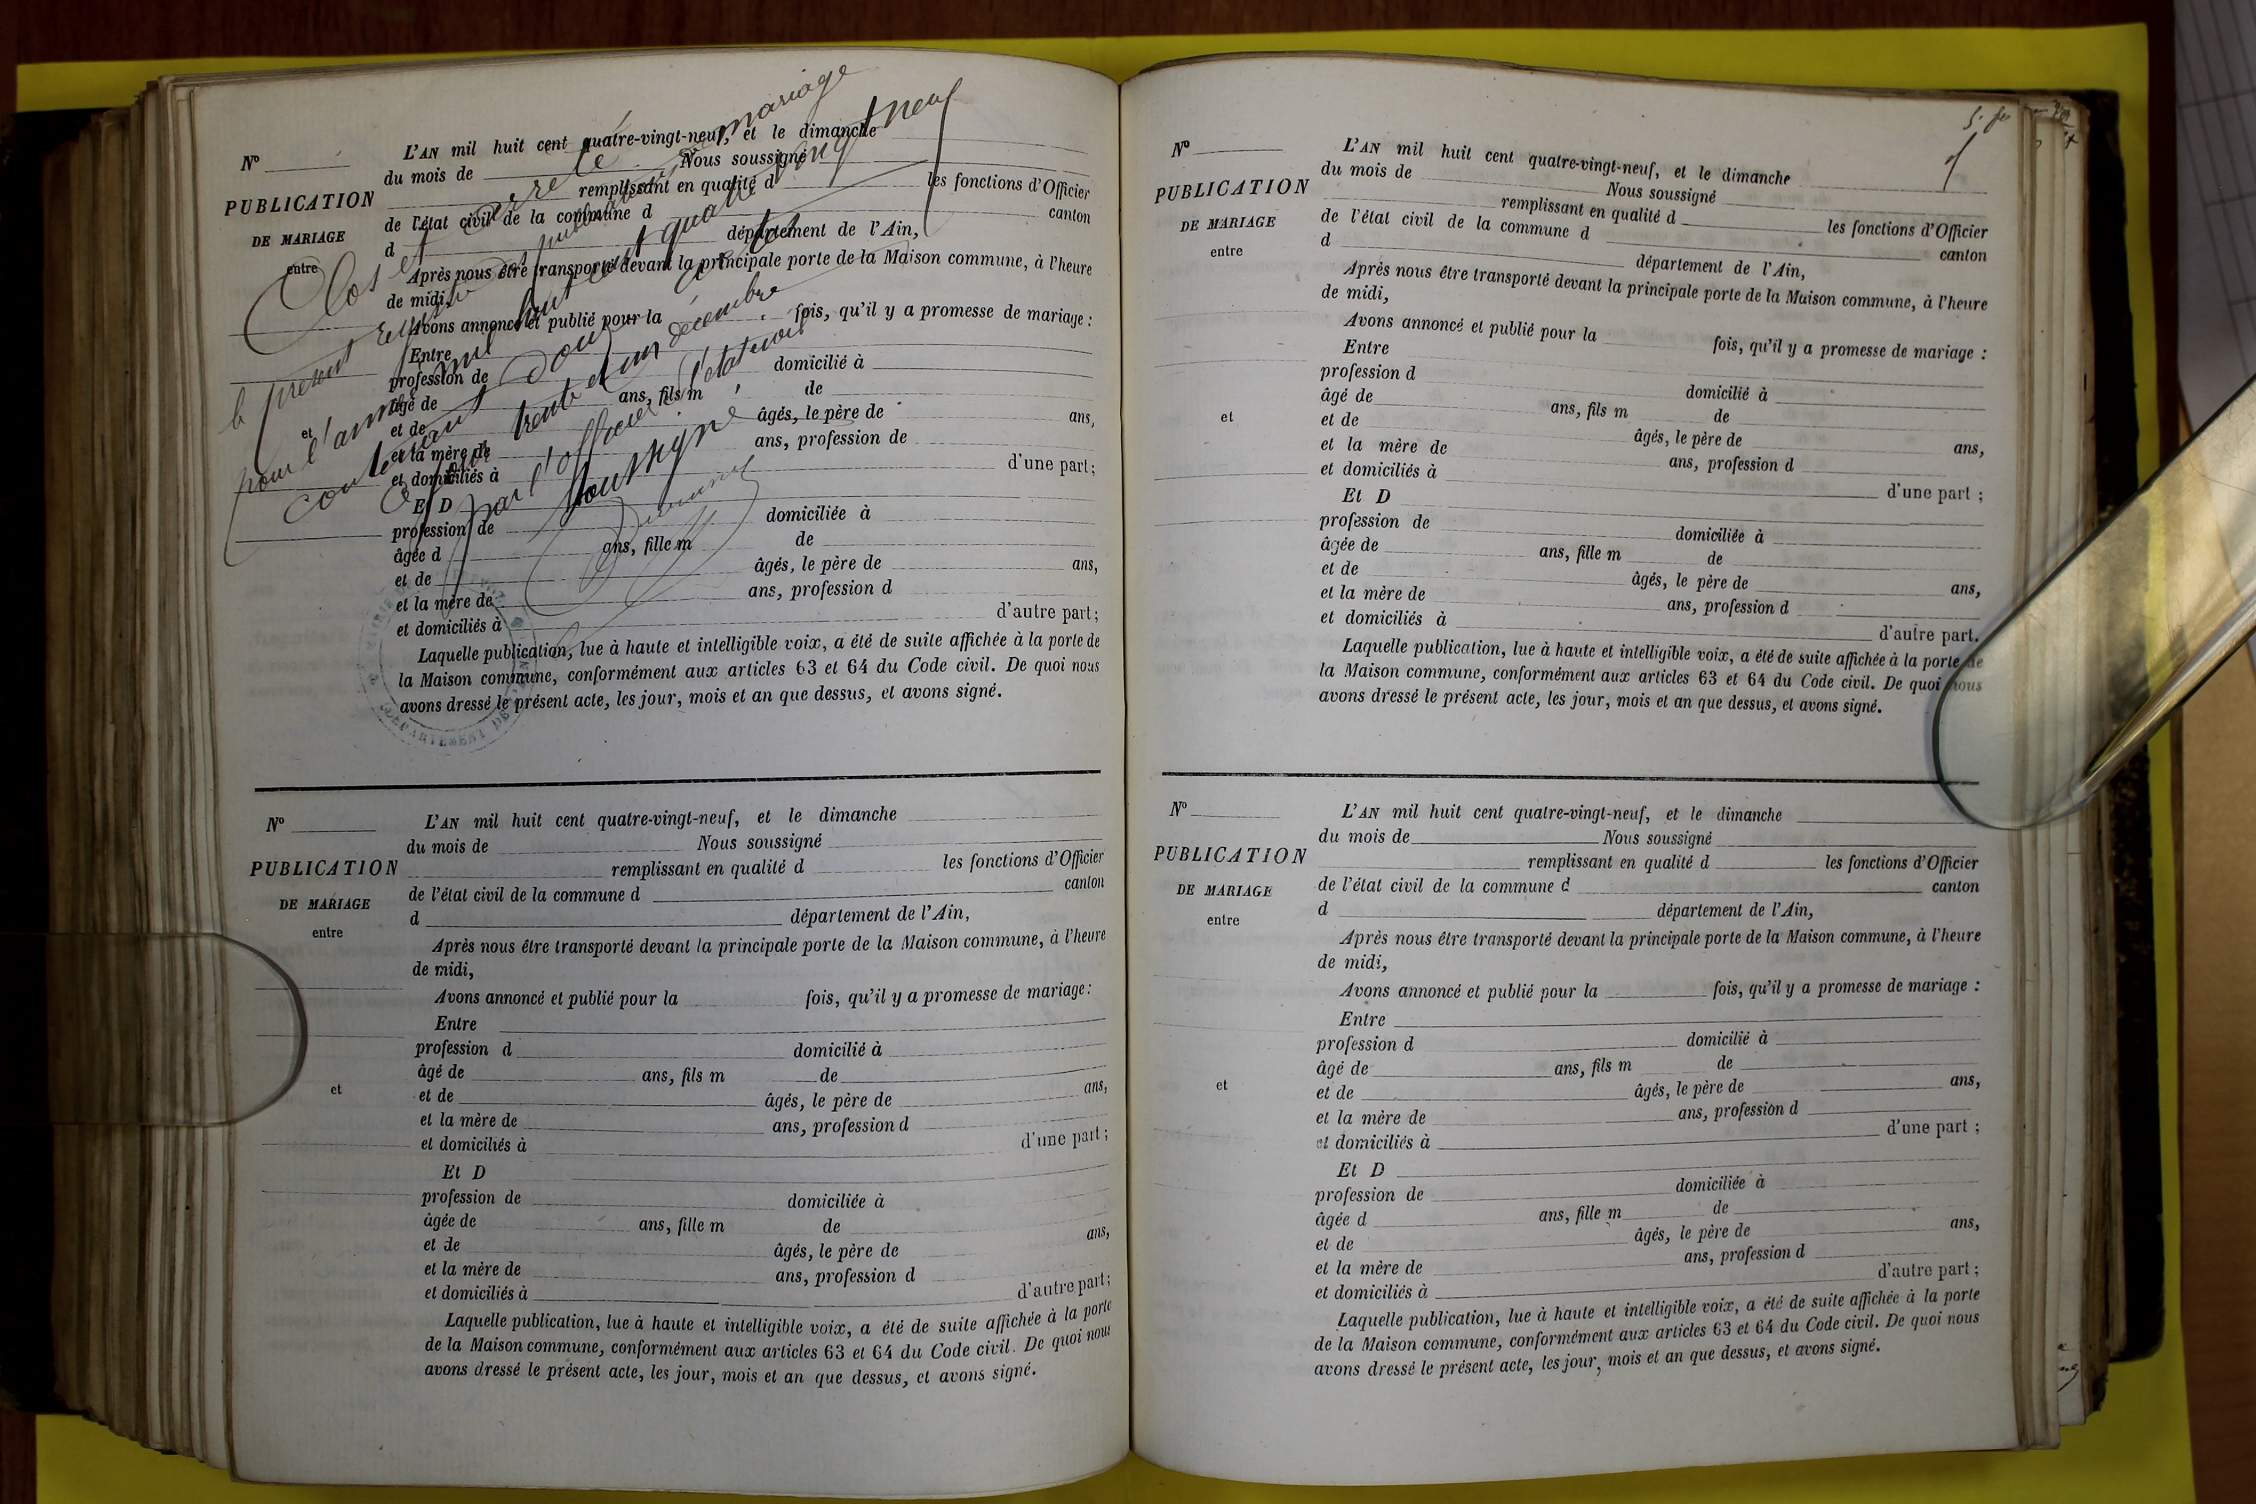 Clos et arrêté
le présent registre des publications de mariage
pour l'année mil huit cent quatre vingt neuf
contenant douze actes
trente et un décembre
par l'officier de l'état civil
soussigné
N°
PUBLICATION
DE MARIAGE
entre
et
L'AN mil huit cent quatre-vingt-neuf, et le dimanche
du mois de Nous soussigné
remplissant en qualité d les fonctions d'Officier
de l'état civil de la commune d canton
d département de l'Ain,
Après nous être transporté devant la principale porte de la Maison commune, à l'heure
de midi,
Avons annoncé et publié pour la fois, qu'il y a promesse de mariage :
Entre
profession de domicilié à
âgé de ans, fils m de
et de âgés, le père de ans,
et la mère de ans, profession de
et domiciliés à d'une part ;
Et D
profession de domiciliée à
âgée d ans, fille m de
et de âgés, le père de ans,
et la mère de ans, profession d
et domiciliés à d'autre part ;
Laquelle publication, lue à haute et intelligible voix, a été de suite affichée à la porte de
la Maison commune, conformément aux articles 63 et 64 du Code civil. De quoi nous
avons dressé le présent acte, les jour, mois et an que dessus, et avons signé.
DÉPARTEMENT DE L'AIN
N°
PUBLICATION
DE MARIAGE
entre
et
L'AN mil huit cent quatre-vingt-neuf, et le dimanche
du mois de Nous soussigné
remplissant en qualité d les fonctions d'Officier
de l'état civil de la commune d canton
d département de l'Ain,
Après nous être transporté devant la principale porte de la Maison commune, à l'heure
de midi,
Avons annoncé et publié pour la fois, qu'il y a promesse de mariage :
Entre
profession d domicilié à
âgé de ans, fils m de
et de âgés, le père de ans,
et la mère de ans, profession d
et domiciliés à d'une part ;
Et D
profession de domiciliée à
âgée de ans, fille m de
et de âgés, le père de ans,
et la mère de ans, profession d
et domiciliés à d'autre part ;
Laquelle publication, lue à haute et intelligible voix, a été de suite affichée à la porte
de la Maison commune, conformément aux articles 63 et 64 du Code civil. De quoi nous
avons dressé le présent acte, les jour, mois et an que dessus, et avons signé.
N°
PUBLICATION
DE MARIAGE
entre
et
L'AN mil huit cent quatre-vingt-neuf, et le dimanche
du mois de Nous soussigné
remplissant en qualité d les fonctions d'Officier
de l'état civil de la commune d canton
d département de l'Ain,
Après nous être transporté devant la principale porte de la Maison commune, à l'heure
de midi,
Avons annoncé et publié pour la fois, qu'il y a promesse de mariage :
Entre
profession d domicilié à
âgé de ans, fils m de
et de âgés, le père de ans,
et la mère de ans, profession d
et domiciliés à d'une part ;
Et D
profession de domiciliée à
âgée de ans, fille m de
et de âgés, le père de ans,
et la mère de ans, profession d
et domiciliés à d'autre part.
Laquelle publication, lue à haute et intelligible voix, a été de suite affichée à la porte de
la Maison commune, conformément aux articles 63 et 64 du Code civil. De quoi nous
avons dressé le présent acte, les jour, mois et an que dessus, et avons signé.
N°
PUBLICATION
DE MARIAGE
entre
et
L'AN mil huit cent quatre-vingt-neuf, et le dimanche
du mois de Nous soussigné
remplissant en qualité d les fonctions d'Officier
de l'état civil de la commune d canton
d département de l'Ain,
Après nous être transporté devant la principale porte de la Maison commune, à l'heure
de midi,
Avons annoncé et publié pour la fois, qu'il y a promesse de mariage :
Entre
profession d domicilié à
âgé de ans, fils m de
et de âgés, le père de ans,
et la mère de ans, profession d
et domiciliés à d'une part ;
Et D
profession de domiciliée à
âgée d ans, fille m de
et de âgés, le père de ans,
et la mère de ans, profession d
et domiciliés à d'autre part ;
Laquelle publication, lue à haute et intelligible voix, a été de suite affichée à la porte
de la Maison commune, conformément aux articles 63 et 64 du Code civil. De quoi nous
avons dressé le présent acte, les jour, mois et an que dessus, et avons signé.